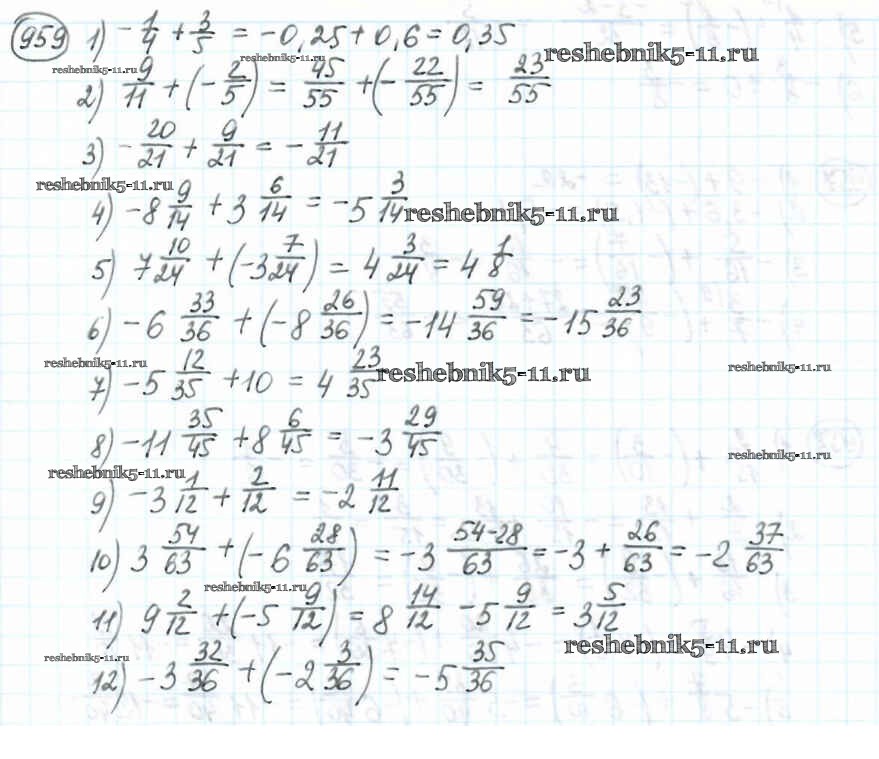 959 1) -1/4 + 3/5 = -0,25 + 0,6 = 0,35
reshebnik5-11.ru
reshebnik5-11.ru reshebnik5-11.ru
2) 9/11 + (-2/5) = 45/55 + (-22/55) = 23/55
3) -20/21 + 9/21 = -11/21
reshebnik5-11.ru
4) -8 9/14 + 3 6/14 = -5 3/14
reshebnik5-11.ru
5) 7 10/24 + (-3 7/24) = 4 3/24 = 4 1/8
6) -6 33/36 + (-8 26/36) = -14 59/36 = -15 23/36
reshebnik5-11.ru
7) -5 12/35 + 10 = 4 23/35
reshebnik5-11.ru reshebnik5-11.ru
8) -11 35/45 + 8 6/45 = -3 29/45
reshebnik5-11.ru
reshebnik5-11.ru
9) -3 1/12 + 2/12 = -2 11/12
10) 3 54/63 + (-6 28/63) = -3 54-28/63 = -3 + 26/63 = -2 37/63
reshebnik5-11.ru
11) 9 2/12 + (-5 9/12) = 8 14/12 - 5 9/12 = 3 5/12
reshebnik5-11.ru
reshebnik5-11.ru
12) -3 32/36 + (-2 3/36) = -5 35/36